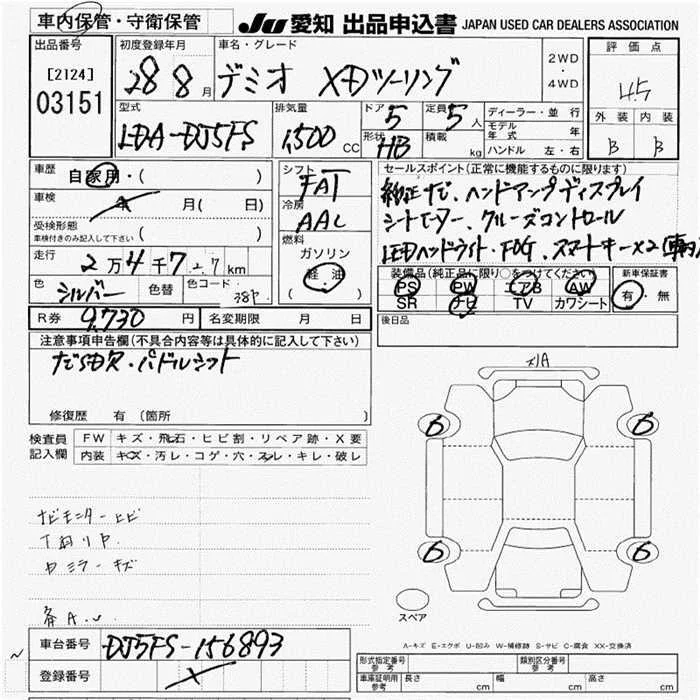 車内保管・守衛保管
JU 愛知 出品申込書 JAPAN USED CAR DEALERS ASSOCIATION
出品番号
[2124]
03151
初度登録年月
28 8月
車名・グレード
デミオ XDツーリング
2WD・4WD
評価点
4.5
外装 内装
B B
型式
LDA-DJ5FS
排気量
1,500 CC
ドア 5
形状 HB
定員 5人
積載 kg
ディーラー・並行
モデル年式 年
ハンドル 左・右
車歴 自家用・( )
車検 年 月( 日)
受検形態
車検付きのみ記入して下さい ( )
走行 2万4千7 km
色 シルバー 色替 色コード 38P
シフト
FAT
冷房
AAC
燃料
ガソリン
軽油
( ・ )
セールスポイント(正常に機能するものに限ります)
純正ナビ、ヘッドアップディスプレイ
シートヒーター、クルーズコントロール
LEDヘッドライト・FOG、スマートキー×2
装備品(純正品に限り○をつけてください)
PS PW エアB AW
SR ナビ TV カワシート
新車保証書
有・無
R券 9,730円 名変期限 月 日
後日品
注意事項申告欄(不具合内容等は具体的に記入して下さい)
パドルシフト
修復歴 有(箇所 )
検査員記入欄
FW キズ・飛石・ヒビ割・リペア跡・X要
内装 キズ・汚レ・コゲ・穴・スレ・キレ・破レ
ナビモニターヒビ
ミラーキズ
6 6
6 6
スペア
A-キズ E-エクボ U-凹み W-補修跡 S-サビ C-腐食 XX-交換済
車台番号 DJ5FS-156893
登録番号
形式指定番号 参考
類別区分番号 参考
車庫証明用 参考 長さ cm 幅 cm 高さ cm